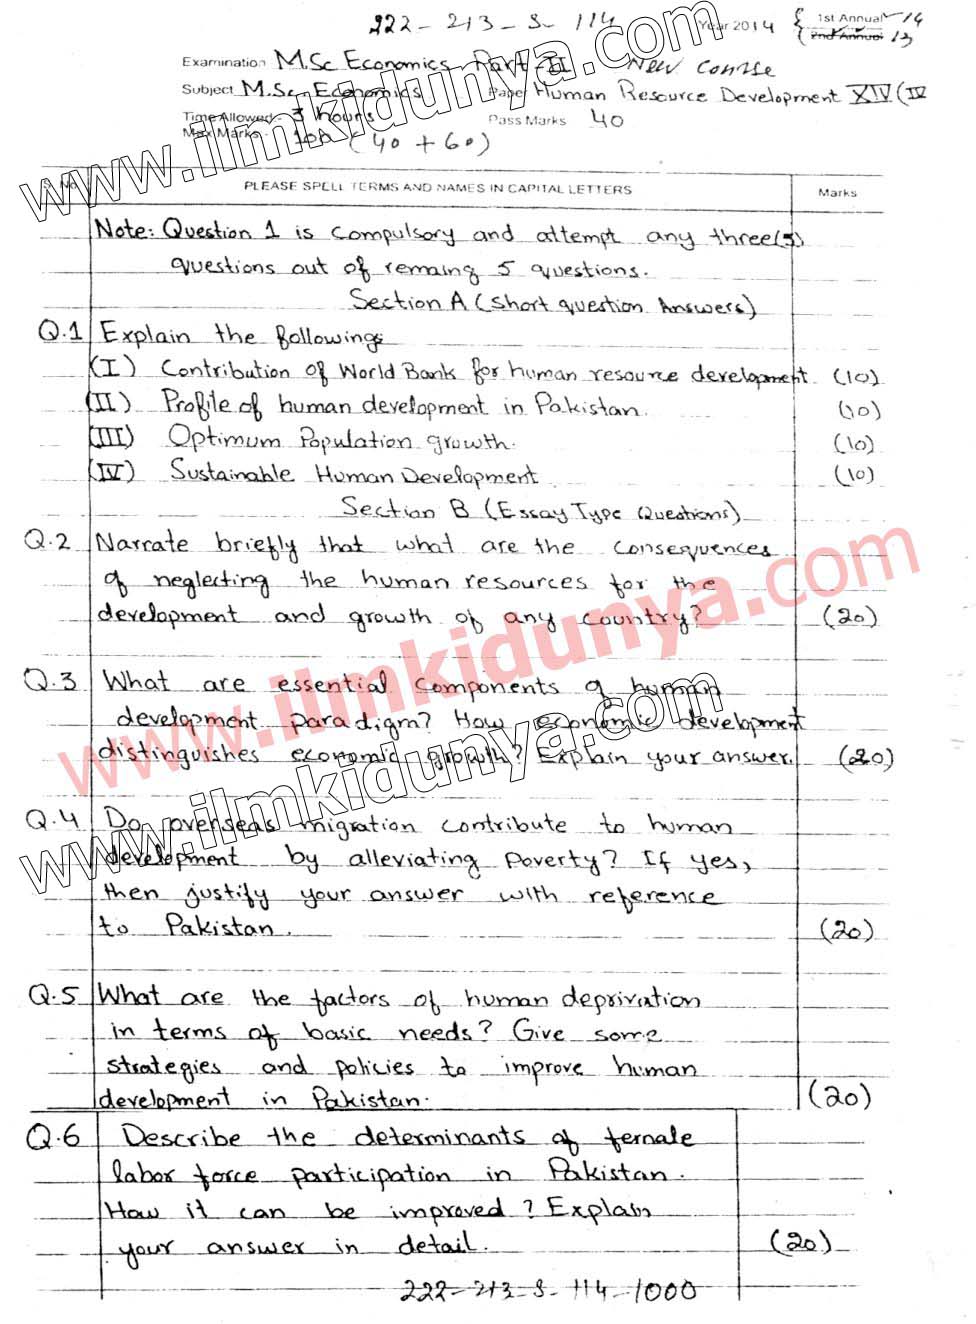 222-213-S-114
Year 2014 { 1st Annual-14
( 2nd Annual 13
Examination M.Sc Economics Part-II New Course
Subject M.Sc Economics Paper Human Resource Development XIV (IV
Time Allowed- 3 hours Pass Marks 40
Max Marks- 100 (40+60)
S. No PLEASE SPELL TERMS AND NAMES IN CAPITAL LETTERS Marks
Note: Question 1 is compulsory and attempt any three(3)
questions out of remaing 5 questions.
Section A (Short question Answers)
Q.1 Explain the following:
(I) Contribution of World Bank for human resource development (10)
(II) Profile of human development in Pakistan. (10)
(III) Optimum Population growth. (10)
(IV) Sustainable Human Development (10)
Section B (Essay Type Questions)
Q.2 Narrate briefly that what are the consequences
of neglecting the human resources for the
development and growth of any country? (20)
Q.3 What are essential components of human
development paradigm? How economic development
distinguishes economic growth? Explain your answer. (20)
Q.4 Do overseas migration contribute to human
development by alleviating poverty? If yes,
then justify your answer with reference
to Pakistan. (20)
Q.5 What are the factors of human deprivation
in terms of basic needs? Give some
strategies and policies to improve human
development in Pakistan. (20)
Q.6 Describe the determinants of female
labor force participation in Pakistan.
How it can be improved? Explain
your answer in detail. (20)
222-213-S-114-1000
www.ilmkidunya.com
www.ilmkidunya.com
www.ilmkidunya.com